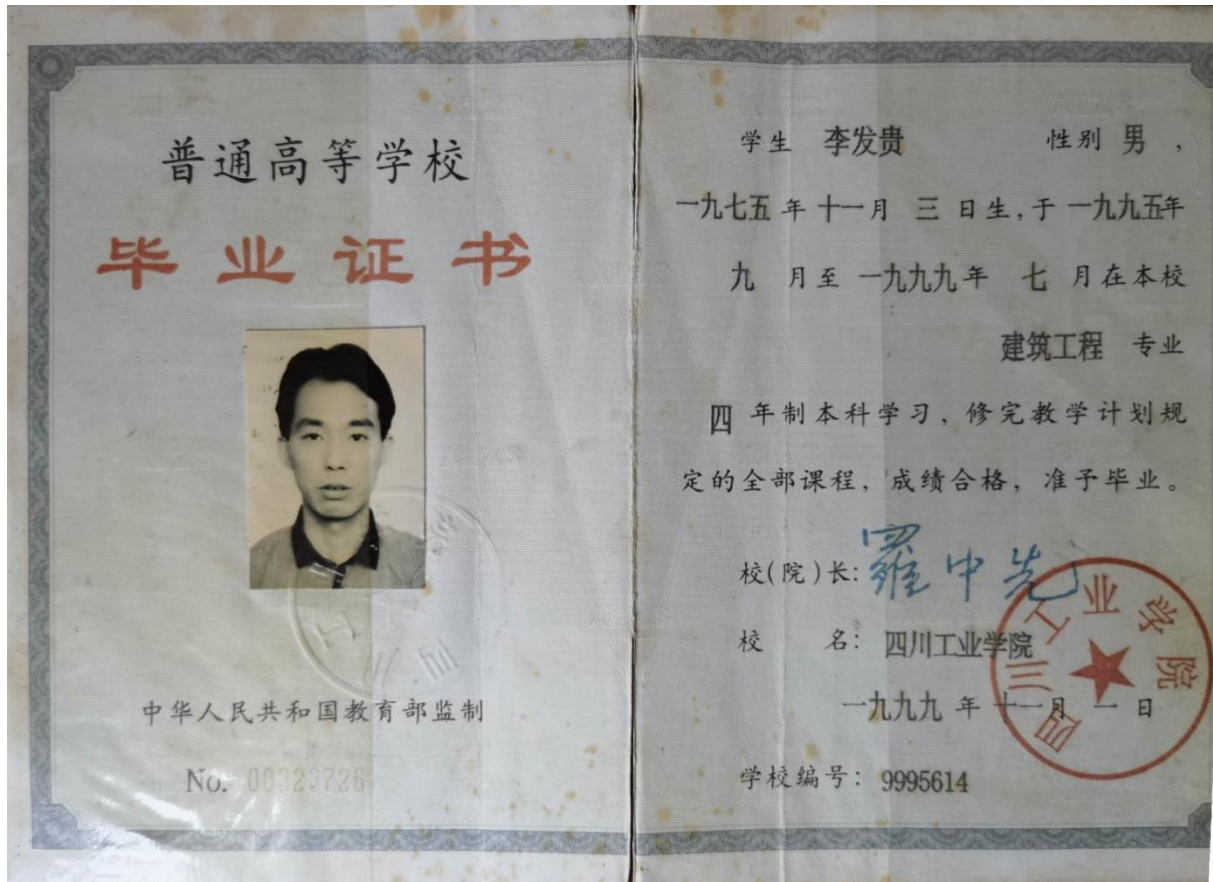 普通高等学校
毕业证书
中华人民共和国教育部监制
No. 00323726
学生 李发贵 性别 男，
一九七五年十一月 三 日生,于 一九九五年
九 月至 一九九九年 七 月在本校
建筑工程 专业
四 年制本科学习，修完教学计划规
定的全部课程，成绩合格，准予毕业。
校(院)长: 羅中先
校 名: 四川工业学院
一九九九 年 十一月 一 日
学校编号: 9995614
四川工业学院